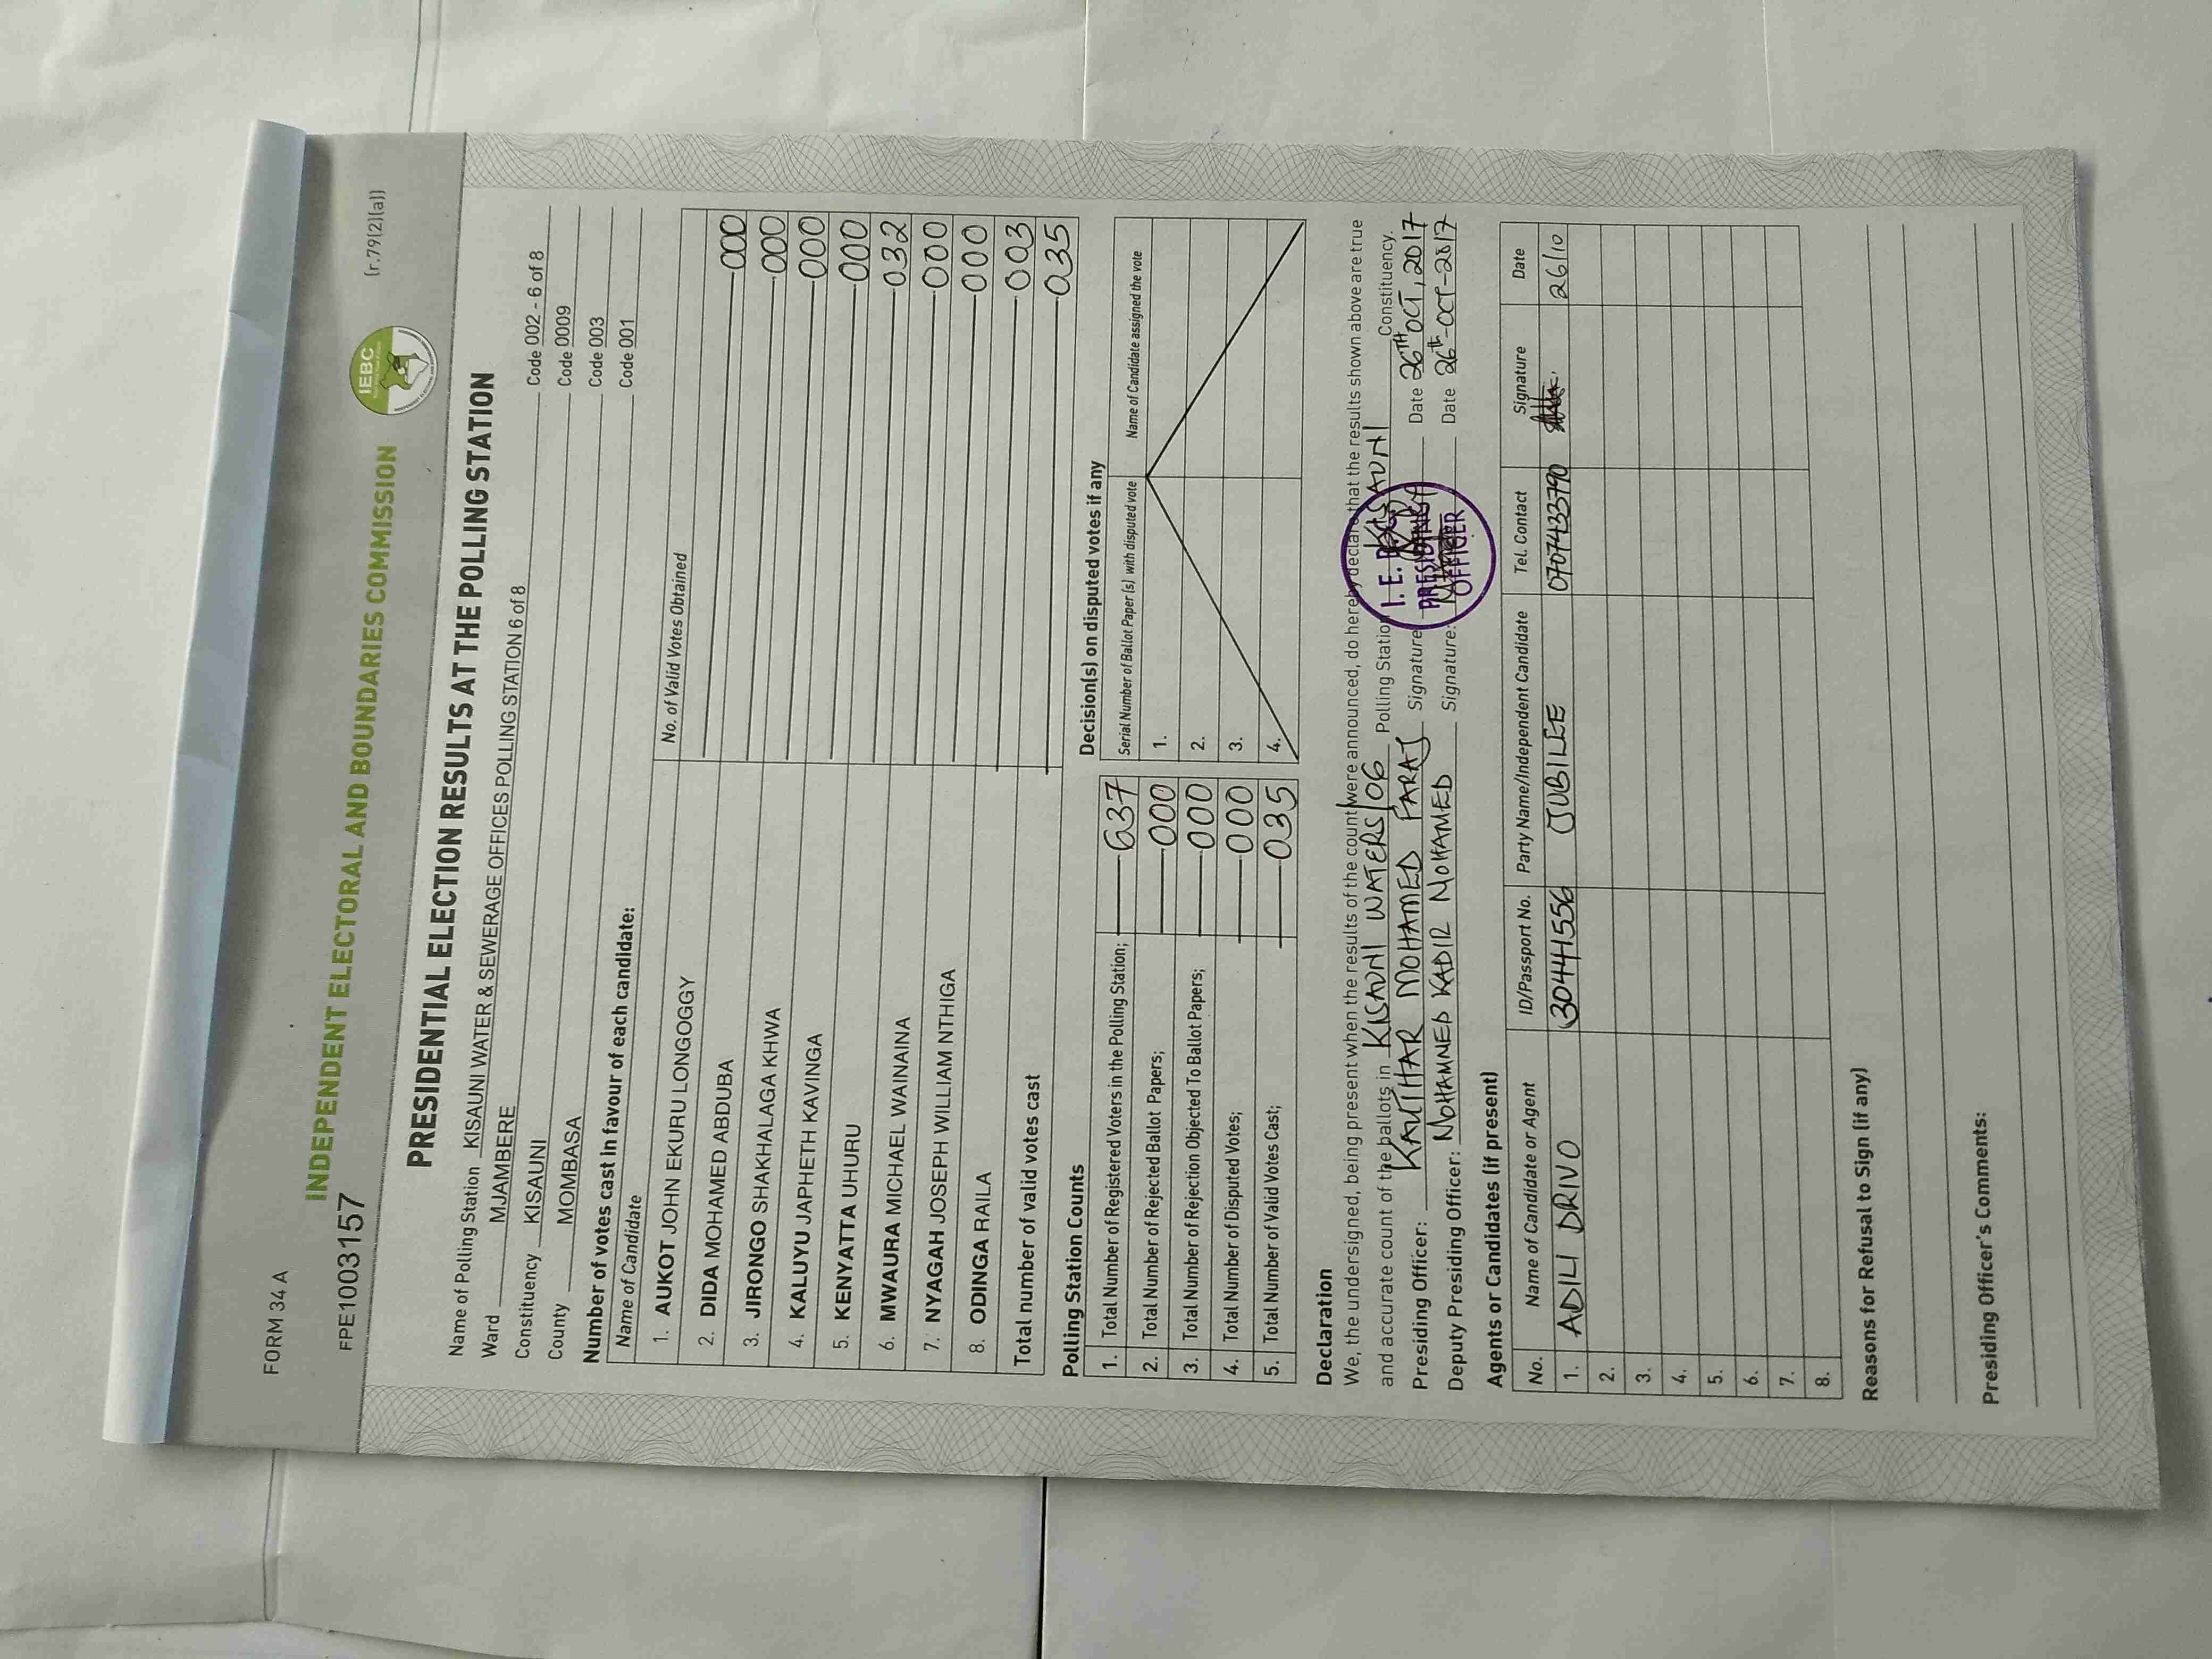 FORM 34 A
(r.79(2)(a))
INDEPENDENT ELECTORAL AND BOUNDARIES COMMISSION
IEBC
FPE1003157
PRESIDENTIAL ELECTION RESULTS AT THE POLLING STATION
Name of Polling Station KISAUNI WATER & SEWERAGE OFFICES POLLING STATION 6 of 8 Code 002 - 6 of 8
Ward MJAMBERE Code 0009
Constituency KISAUNI Code 003
County MOMBASA Code 001
Number of votes cast in favour of each candidate:
Name of Candidate No. of Valid Votes Obtained
1. AUKOT JOHN EKURU LONGOGGY 000
2. DIDA MOHAMED ABDUBA 000
3. JIRONGO SHAKHALAGA KHWA 000
4. KALUYU JAPHETH KAVINGA 000
5. KENYATTA UHURU 032
6. MWAURA MICHAEL WAINAINA 000
7. NYAGAH JOSEPH WILLIAM NTHIGA 000
8. ODINGA RAILA 003
Total number of valid votes cast 035
Polling Station Counts
1. Total Number of Registered Voters in the Polling Station; 637
2. Total Number of Rejected Ballot Papers; 000
3. Total Number of Rejection Objected To Ballot Papers; 000
4. Total Number of Disputed Votes; 000
5. Total Number of Valid Votes Cast; 035
Decision(s) on disputed votes if any
Serial Number of Ballot Paper (s) with disputed vote Name of Candidate assigned the vote
1.
2.
3.
4.
Declaration
We, the undersigned, being present when the results of the count were announced, do hereby declare that the results shown above are true
and accurate count of the ballots in KISAUNI WATERS/06 Polling Station KISAUNI Constituency.
Presiding Officer: KAUTHAR MOHAMED FARAJ Signature: Date 26TH OCT, 2017
Deputy Presiding Officer: MOHAMMED KADIR MOHAMED Signature: Date 26th-OCT-2017
I. E. B. C
PRESIDING
OFFICER
Agents or Candidates (if present)
No. Name of Candidate or Agent ID/Passport No. Party Name/Independent Candidate Tel. Contact Signature Date
1. ADILI DRIVO 30441556 JUBILEE 0707433790 26/10
2.
3.
4.
5.
6.
7.
8.
Reasons for Refusal to Sign (if any)
Presiding Officer's Comments: